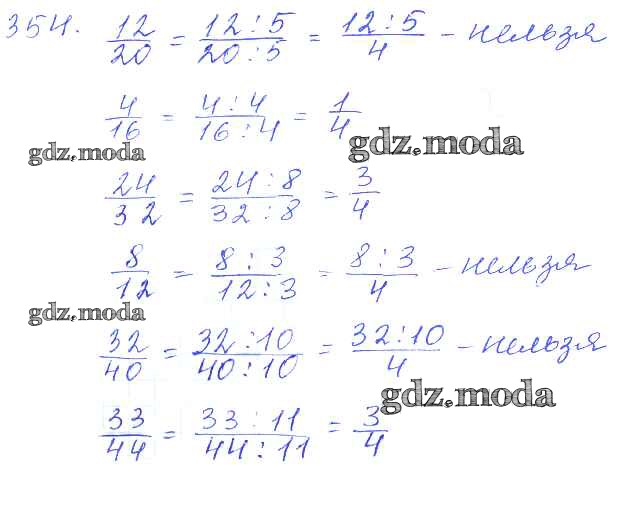 354. 12/20 = 12:5/20:5 = 12:5/4 - нельзя
4/16 = 4:4/16:4 = 1/4
gdz.moda
gdz.moda
24/32 = 24:8/32:8 = 3/4
8/12 = 8:3/12:3 = 8:3/4 - нельзя
gdz.moda
32/40 = 32:10/40:10 = 32:10/4 - нельзя
gdz.moda
33/44 = 33:11/44:11 = 3/4